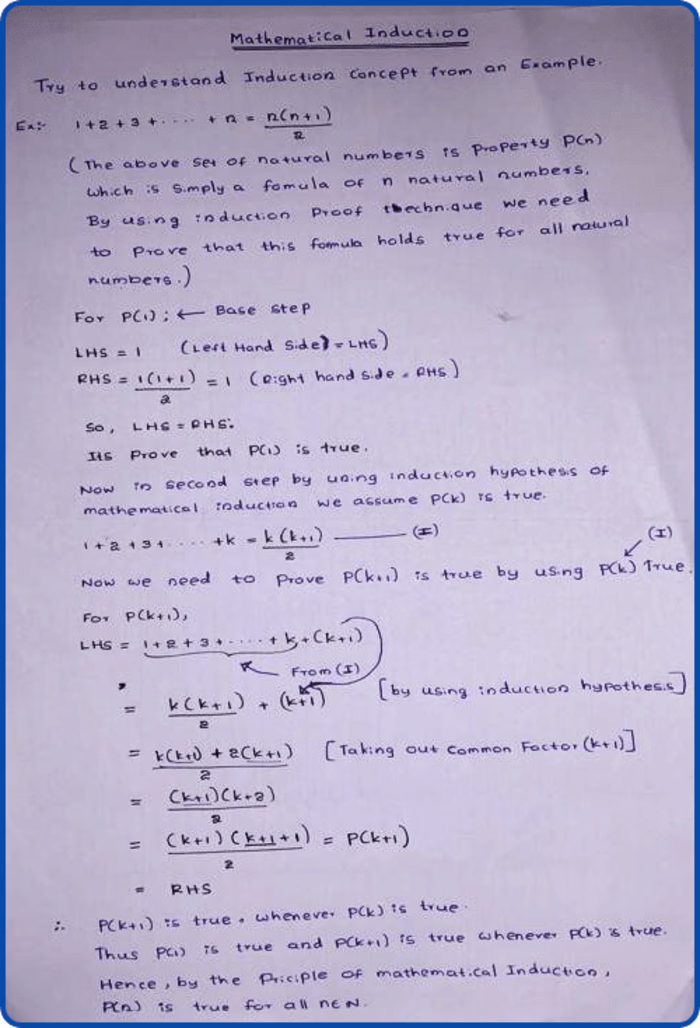 Mathematical Induction
Try to understand Induction Concept from an Example.
Ex:- 1+2+3+.....+n = n(n+1)/2
(The above set of natural numbers is Property P(n)
which is simply a fomula of n natural numbers.
By using induction Proof thechnique we need
to Prove that this fomula holds true for all natural
numbers.)
For P(1); ← Base step
LHS = 1 (Left Hand Side) = LHS)
RHS = 1(1+1)/2 = 1 (Right hand side = RHS)
So, LHS = RHS.
Its Prove that P(1) is true.
Now in second step by using induction hypothesis of
mathematical induction we assume P(k) is true.
1+2+3+.....+k = k(k+1)/2 ——— (I)
(I)
Now we need to Prove P(k+1) is true by using P(k) True.
For P(k+1),
LHS = 1+2+3+.....+k+(k+1)
From (I)
= k(k+1)/2 + (k+1) [by using induction hypothesis]
= k(k+1) + 2(k+1)/2 [Taking out Common Factor (k+1)]
= (k+1)(k+2)/2
= (k+1)(k+1+1)/2 = P(k+1)
= RHS
∴ P(k+1) is true, whenever P(k) is true.
Thus P(1) is true and P(k+1) is true whenever P(k) is true.
Hence, by the Priciple of mathematical Induction,
P(n) is true for all n∈N.